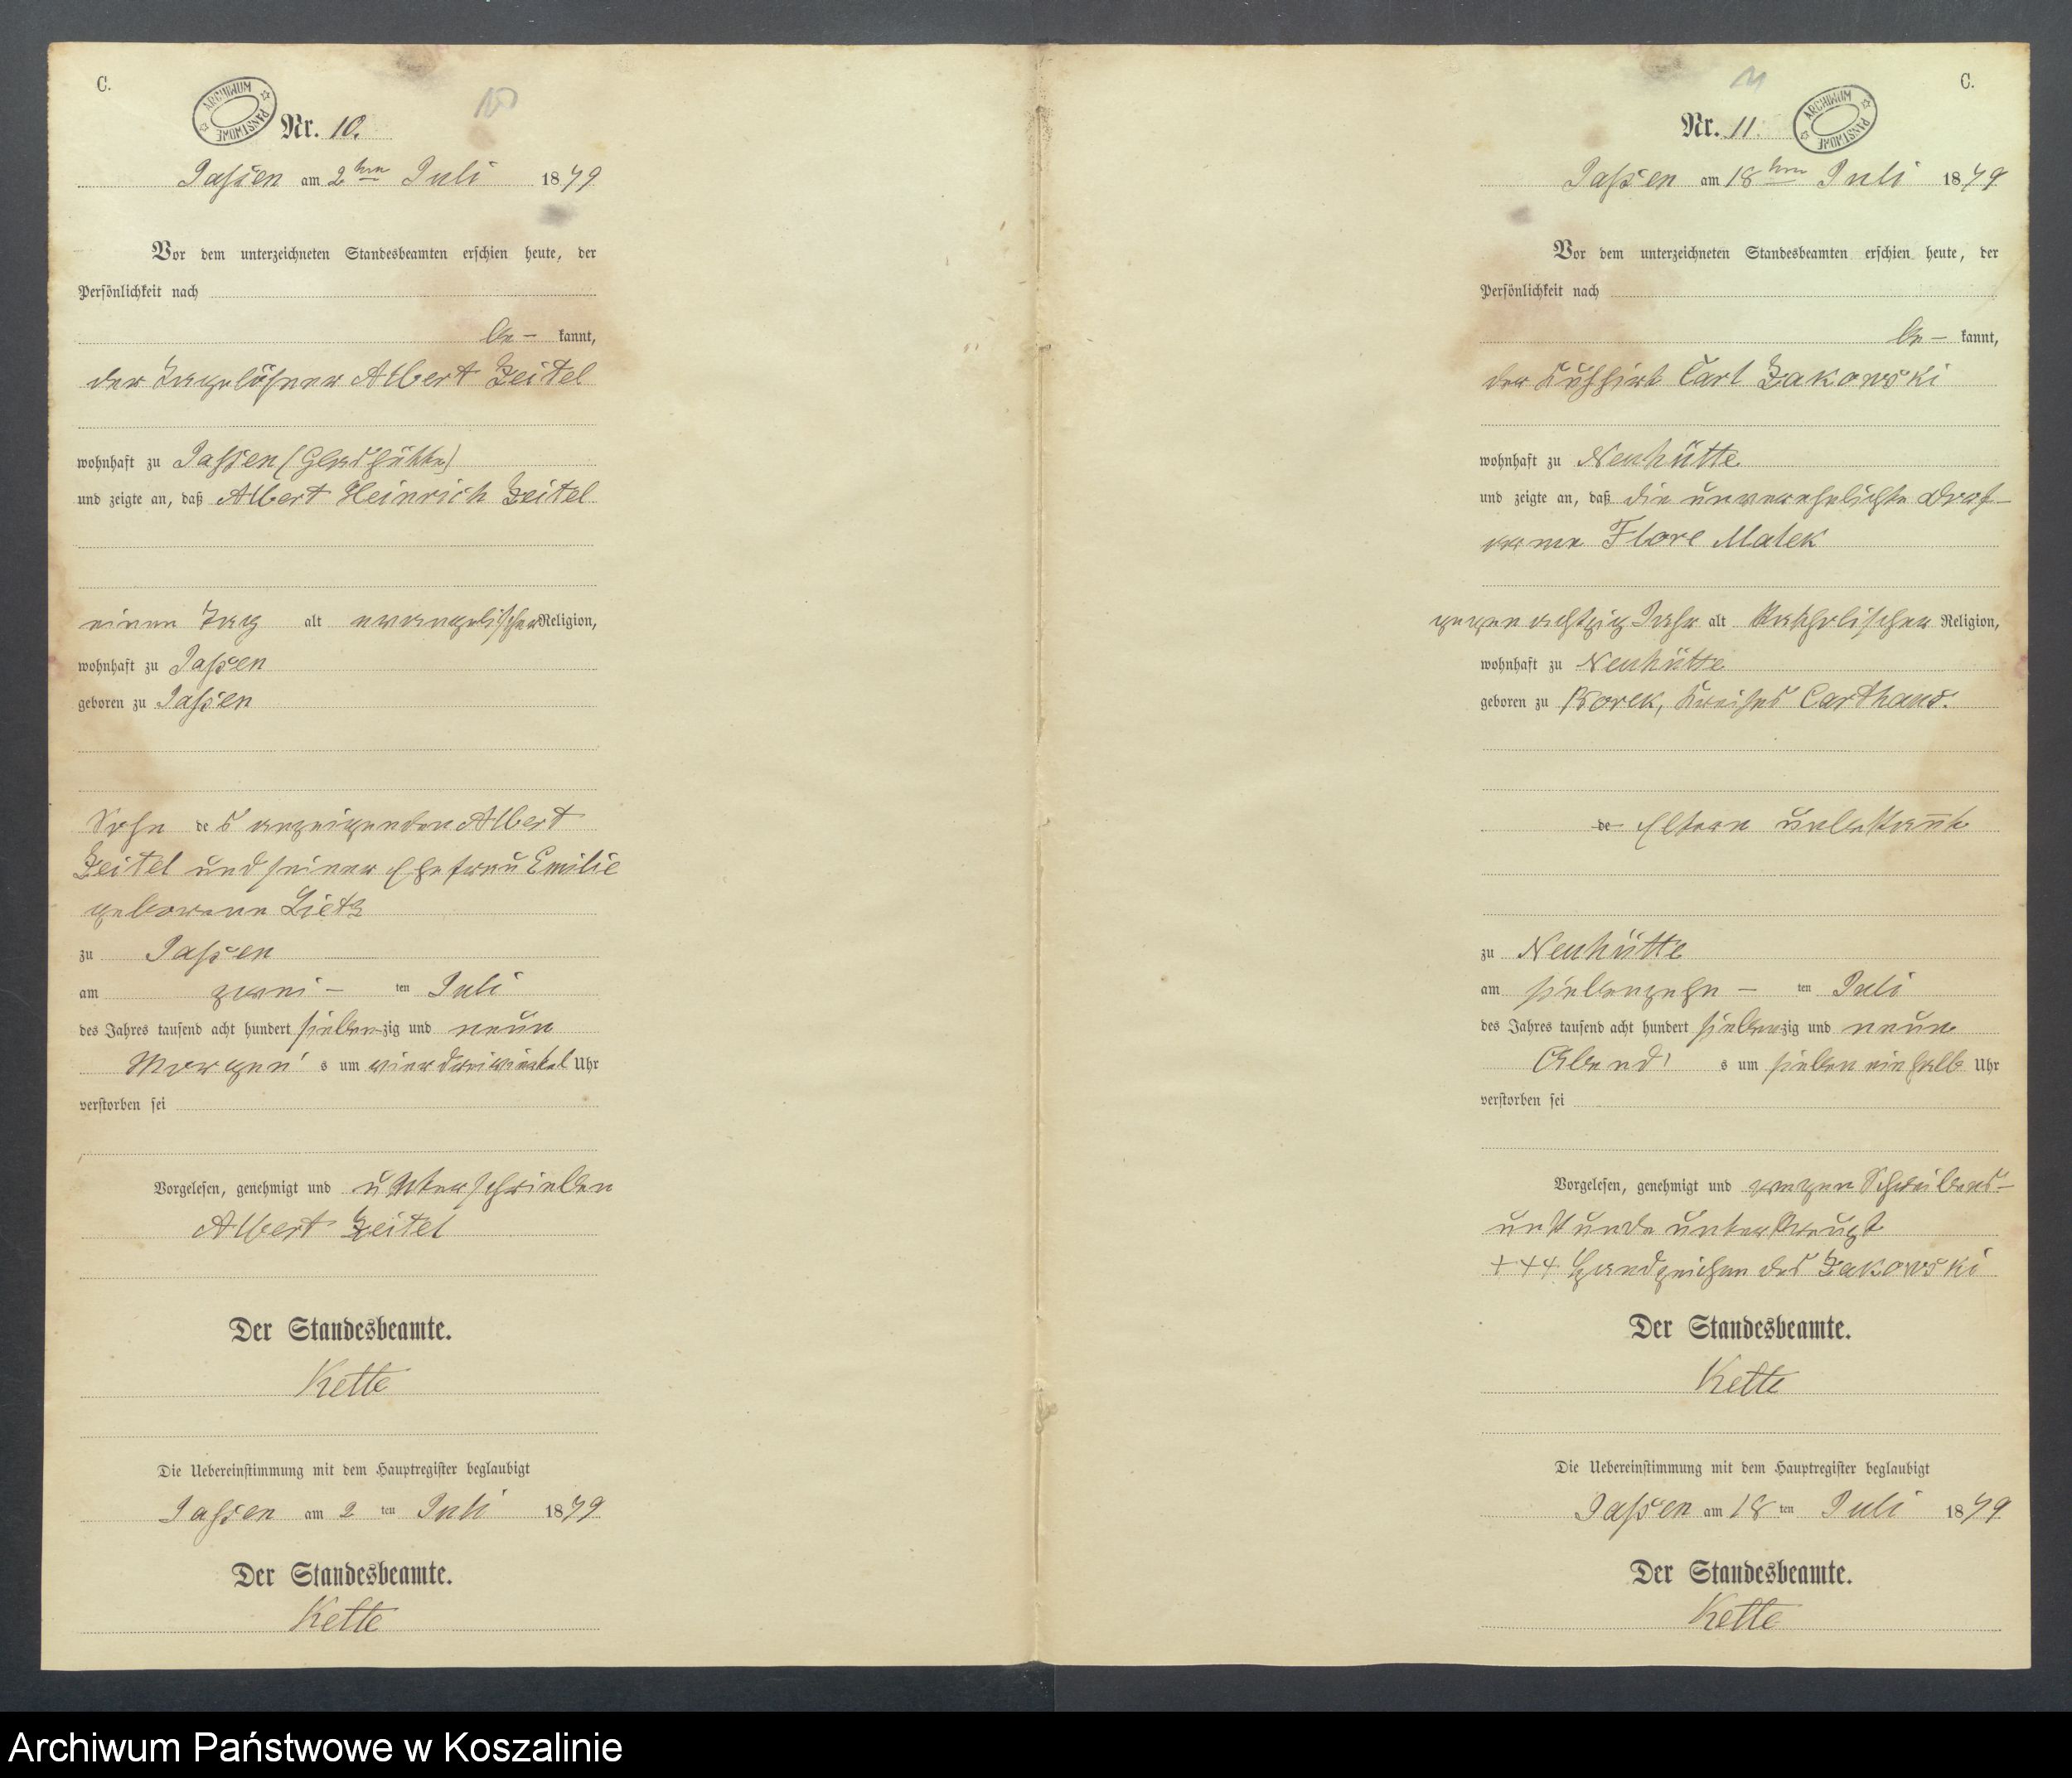 C.
ARCHIWUM PAŃSTWOWE
Nr. 10.
Jassen am 2ten Juli 1879
Vor dem unterzeichneten Standesbeamten erschien heute, der
Persönlichkeit nach
be- kannt,
der Tagelöhner Albert Zeitel
wohnhaft zu Jassen (Glashütte)
und zeigte an, daß Albert Heinrich Zeitel
einen Tag alt evangelischer Religion,
wohnhaft zu Jassen
geboren zu Jassen
Sohn des anzeigenden Albert
Zeitel und seiner Ehefrau Emilie
geborene Lietz
zu Jassen
am zwei- ten Juli
des Jahres tausend acht hundert siebenzig und neun
Morgen's um vier dreiviertel Uhr
verstorben sei
Vorgelesen, genehmigt und unterschrieben
Albert Zeitel
Der Standesbeamte.
Kette
Die Uebereinstimmung mit dem Hauptregister beglaubigt
Jassen am 2 ten Juli 1879
Der Standesbeamte.
Kette
11
C.
Nr. 11.
ARCHIWUM PAŃSTWOWE
Jassen am 18ten Juli 1879
Vor dem unterzeichneten Standesbeamten erschien heute, der
Persönlichkeit nach
be- kannt,
der Kuhhirt Carl Zakowski
wohnhaft zu Neuhütte
und zeigte an, daß die unverehelichte Orts-
arme Flore Malek
gegen achtzig Jahr alt katholischer Religion,
wohnhaft zu Neuhütte
geboren zu Borek, Kreises Carthaus.
de Eltern unbekannt
zu Neuhütte
am siebenzehn- ten Juli
des Jahres tausend acht hundert siebenzig und neun
Abend's um sieben einhalb Uhr
verstorben sei
Vorgelesen, genehmigt und wegen Schreibens-
unkunde unterkreuzt
+++ Handzeichen des Zakowski
Der Standesbeamte.
Kette
Die Uebereinstimmung mit dem Hauptregister beglaubigt
Jassen am 18 ten Juli 1879
Der Standesbeamte.
Kette
Archiwum Państwowe w Koszalinie